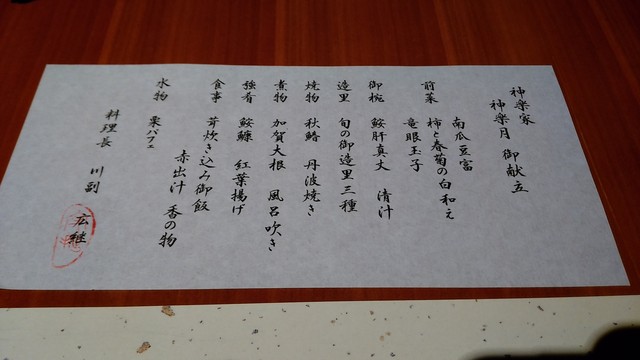 神楽家
神楽月 御献立
南瓜豆富
前菜 柿と春菊の白和え
竜眼玉子
御椀 鮟肝真丈 清汁
造里 旬の御造里三種
焼物 秋鰆 丹波焼き
煮物 加賀大根 風呂吹き
強肴 鮟鱇 紅葉揚げ
食事 茸炊き込み御飯
赤出汁 香の物
水物 栗パフェ
料理長 川副 広継